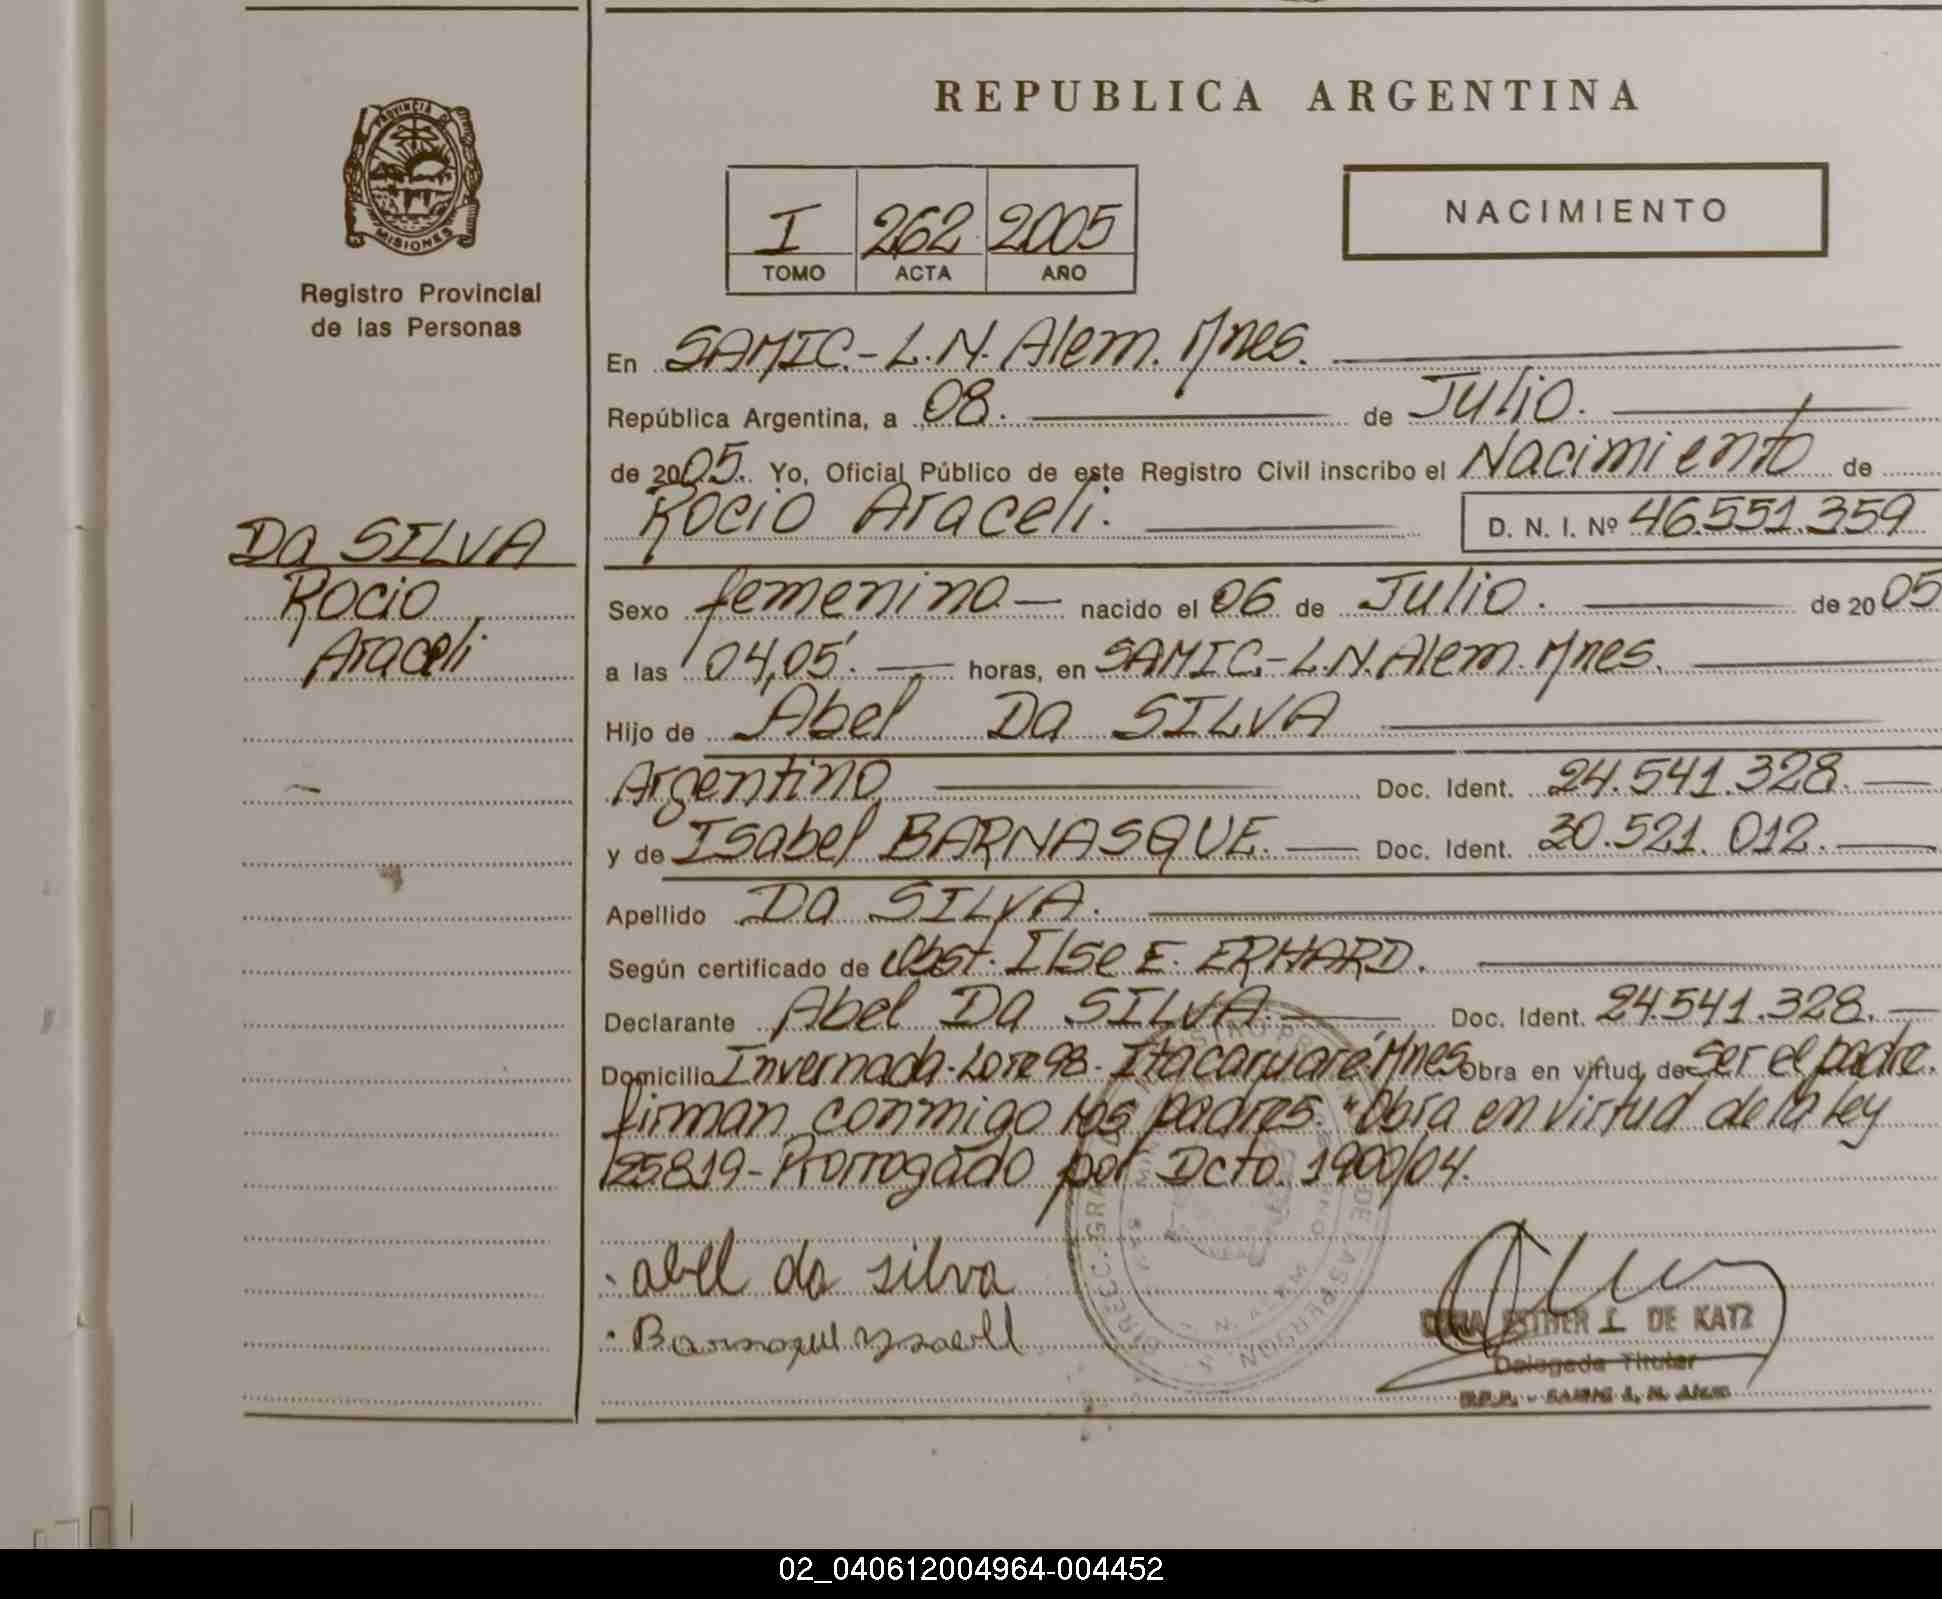 REPUBLICA ARGENTINA
PROVINCIA DE
MISIONES
Registro Provincial
de las Personas
I 262 2005
TOMO ACTA AÑO
NACIMIENTO
En SAMIC.- L.N. Alem. Mnes.
República Argentina, a 08. de Julio.
de 2005. Yo, Oficial Público de este Registro Civil inscribo el Nacimiento de
Rocio Araceli. D. N. I. Nº 46.551.359
Da SILVA
Rocio
Araceli
Sexo femenino nacido el 06 de Julio. de 2005
a las 04,05'. horas, en SAMIC.- L.N. Alem. Mnes.
Hijo de Abel Da SILVA
Argentino Doc. Ident. 24.541.328.
y de Isabel BARNASQUE. Doc. Ident. 30.521.012.
Apellido Da SILVA.
Según certificado de Obst. Ilse E. ERHARD.
Declarante Abel Da SILVA. Doc. Ident. 24.541.328.
Domicilio Invernada-Lote 98- Itacaruaré. Mnes Obra en virtud de ser el padre.
firman conmigo los padres. "Obra en virtud de la Ley
25819- Prorrogado por Dcto. 1900/04.
abel da silva
ESTHER I. DE KATZ
Delegada Titular
02_040612004964-004452